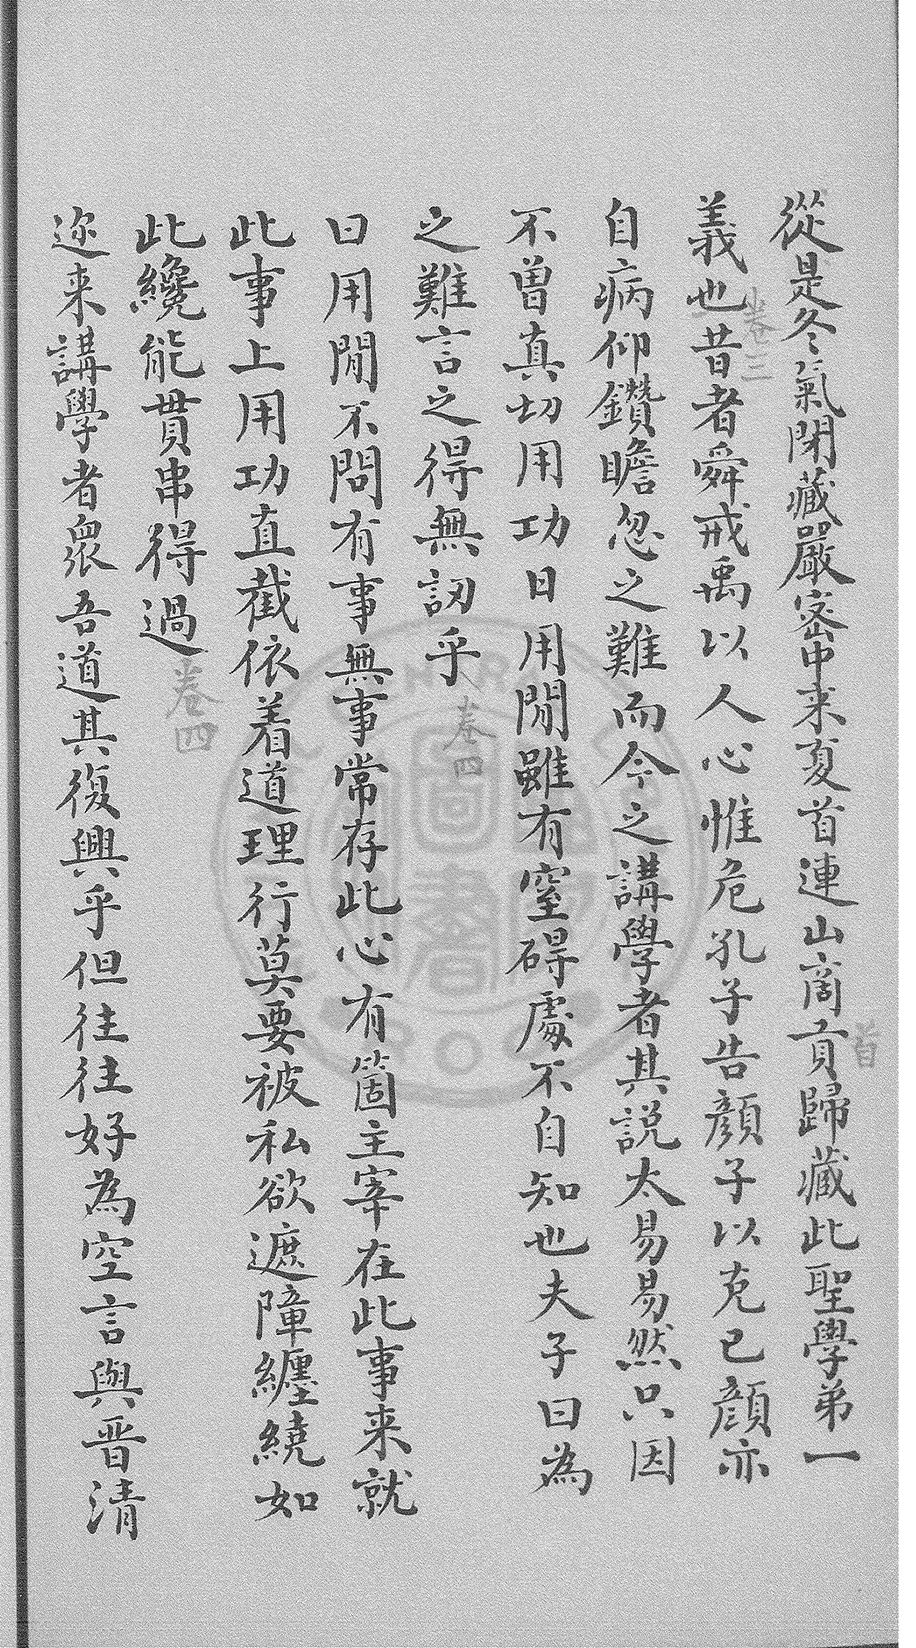 從是冬氣閉藏嚴密中来夏首連山商貢歸藏此聖學第一
首
義也昔者舜戒禹以人心惟危孔子告顔子以克已顔亦
卷三
自病仰鑽瞻忽之難而今之講學者其説太易易然只因
不曽真切用功日用閒雖有窒碍處不自知也夫子曰為
之難言之得無訒乎
卷四
日用閒不問有事無事常存此心有箇主宰在此事来就
此事上用功直截依着道理行莫要被私欲遮障纒繞如
此纔能貫串得過
卷四
迩来講學者衆吾道其復興乎但往往好為空言與晋清